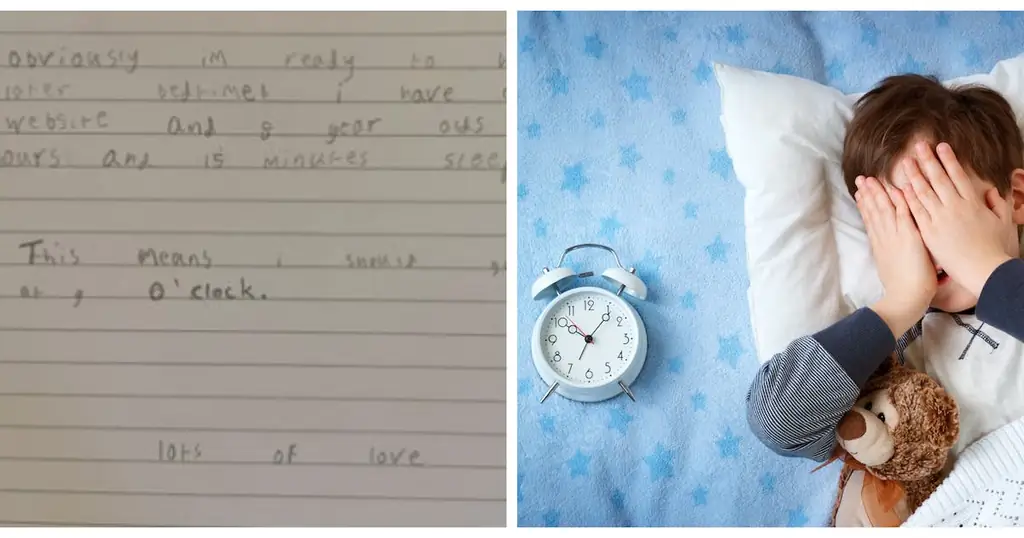 obviously im ready to
later bedtimes i have
website and 8 year olds
ours and 15 minutes sleep
This means i should
at 9 O'clock.
lots of love
12
1
2
3
4
5
6
7
8
9
10
11